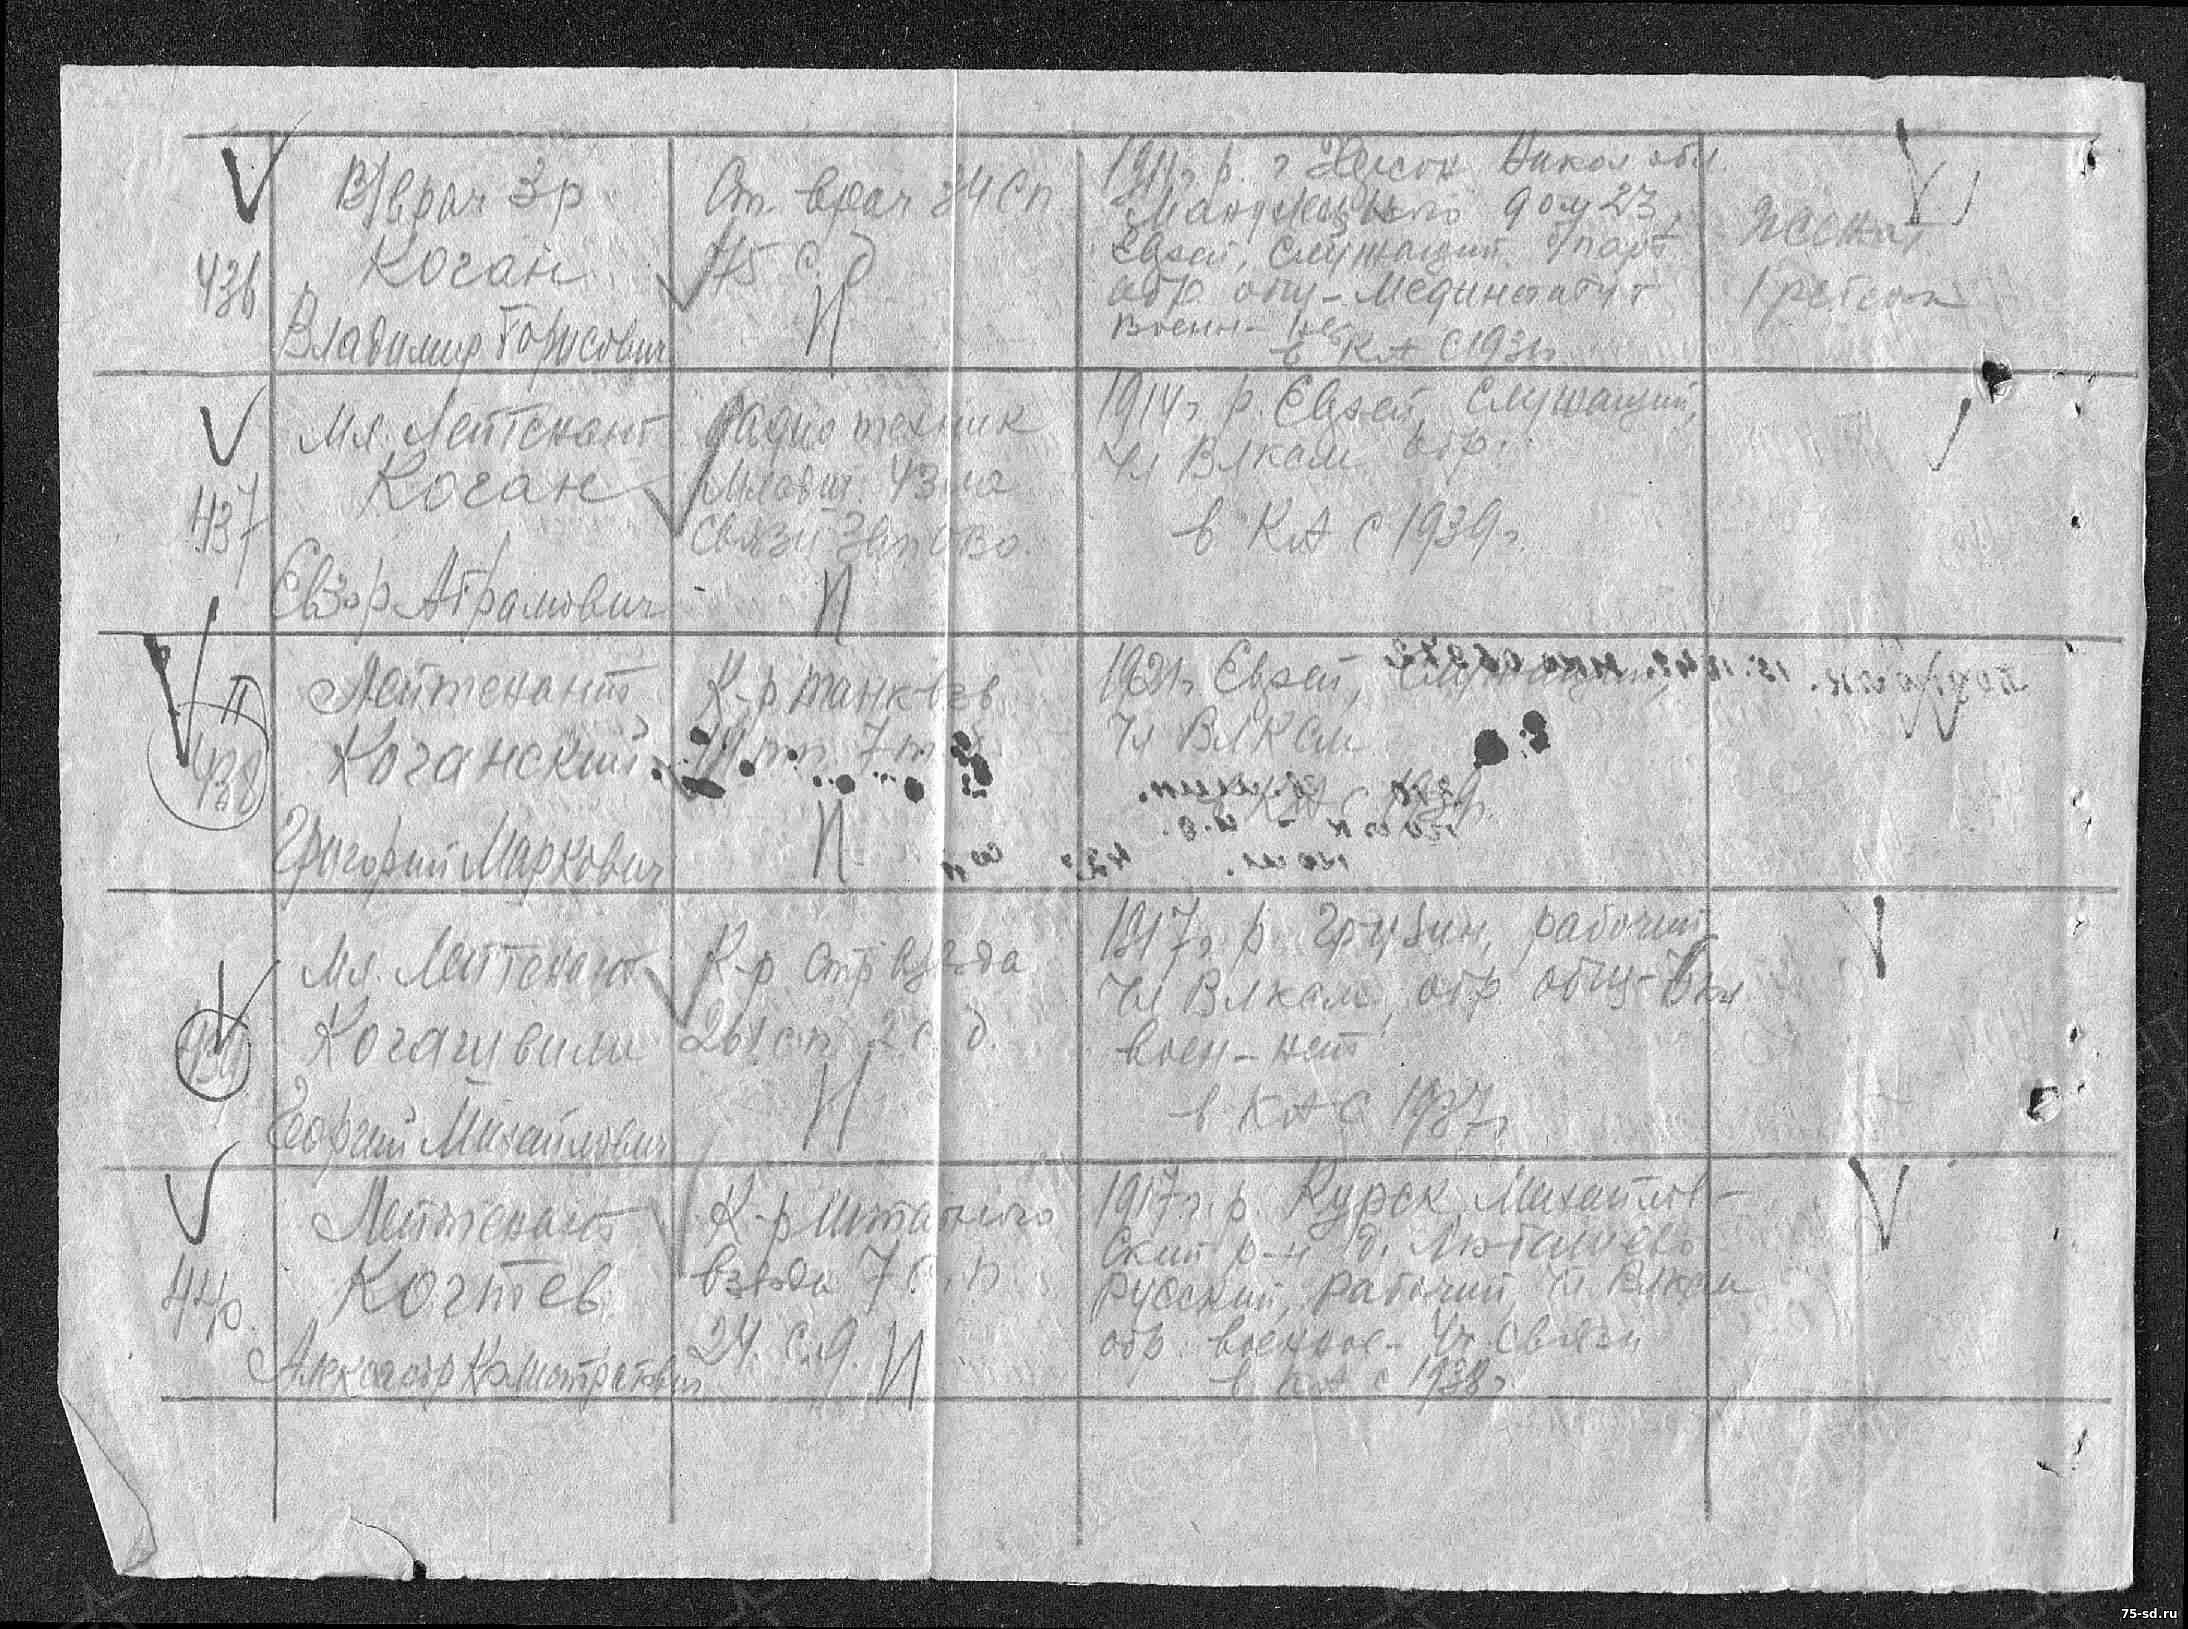 436
В/врач 3р
Коган
Владимир Борисович
Ст. врач 34 сп
75 с. д
И
1911г р. г Херсон Никол обл.
дом 23
Еврей, служащий б/парт
обр общ - Мединститут
военн - нет
в КА с 1931г
женат
437
Мл. Лейтенант
Коган
Абрамович
Радиотехник
43
связи ЗапОВО.
И
1914г р. Еврей, служащий,
чл ВЛКСМ обр.
в КА с 1939г.
П
438
Лейтенант
Коганский
Григорий Маркович
К-р танк взв
тп 7
И
1921г Еврей,
чл ВЛКСМ
в КА с 1939г.
439
Мл. Лейтенант
Когашвили
Георгий Михайлович
К-р стр взвода
261 сп 2 с. д.
И
1917г р грузин, рабочий
чл ВЛКСМ, обр общ-
воен - нет
в КА с 1937г
440.
Лейтенант
Когтев
Александр
К-р штабного
взвода 7 с. п
24. с.д. И
1917г. р. Курск Михайлов-
ский р-н д.
русский, рабочий чл ВЛКСМ
обр военное - уч связи
в КА с 1938г
75-sd.ru